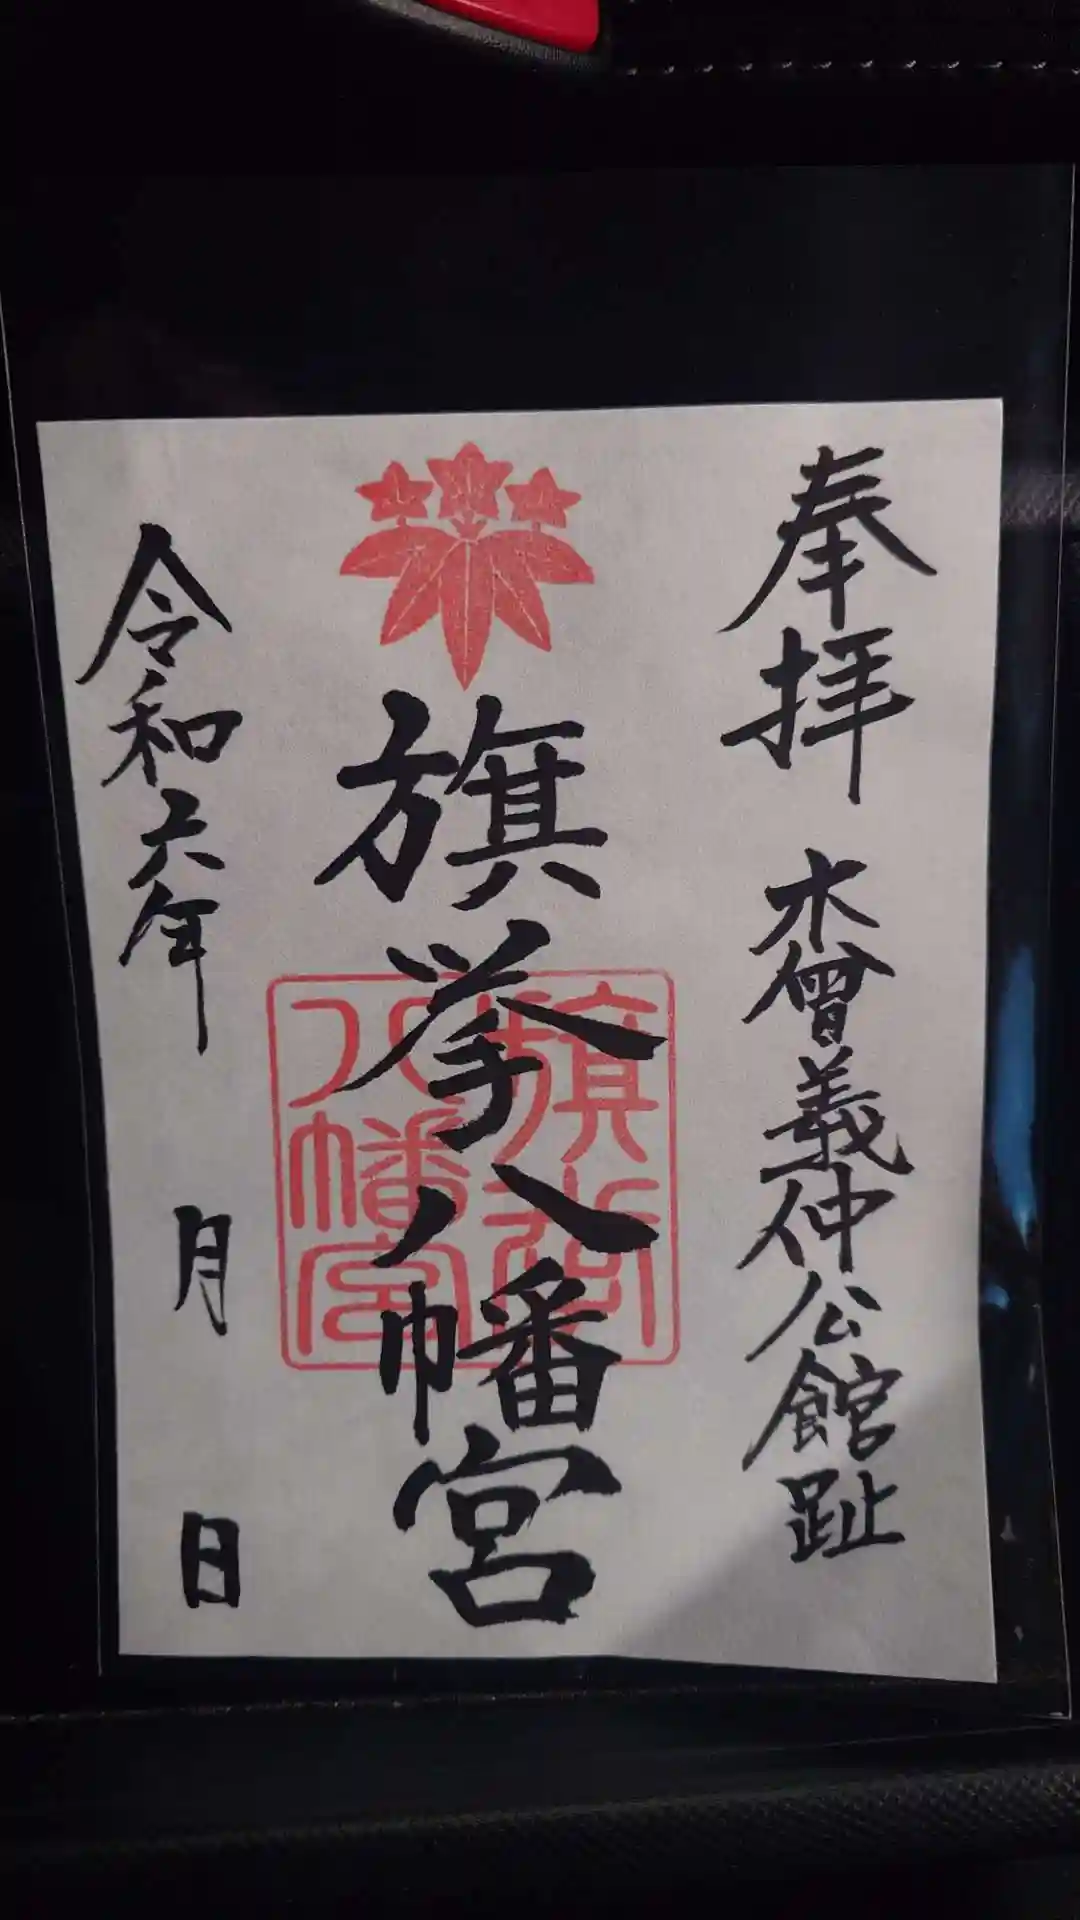 奉拝 木曾義仲公館趾
旗挙八幡宮
旗挙八幡宮
令和六年 月 日